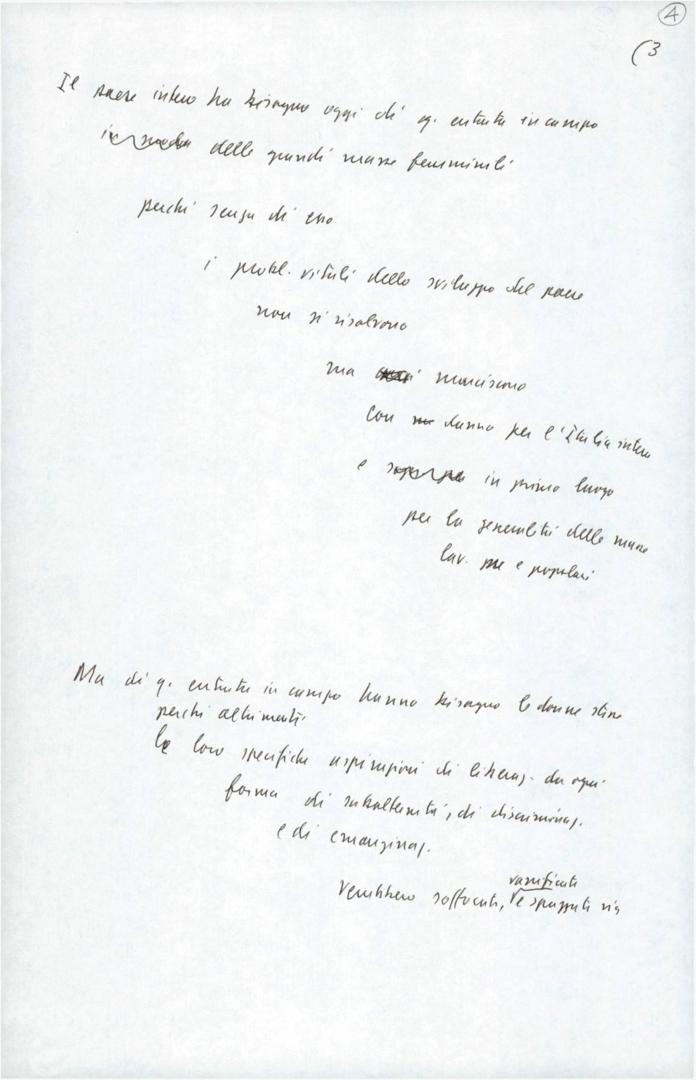 4
(3
Il paese intero ha bisogno oggi di q. entrata in campo
delle grandi masse femminili
perché senza di essa
i probl. vitali dello sviluppo del paese
non si risolvono
ma marciscono
con danno per l'Italia intera
e in primo luogo
per la generalità delle masse
lav. e popolari
Ma di q. entrata in campo hanno bisogno le donne stesse
perché altrimenti
le loro specifiche aspirazioni di liberaz. da ogni
forma di subalternità, di discriminaz.
e di emarginaz.
vanificate
verrebbero soffocate, e spazzate via